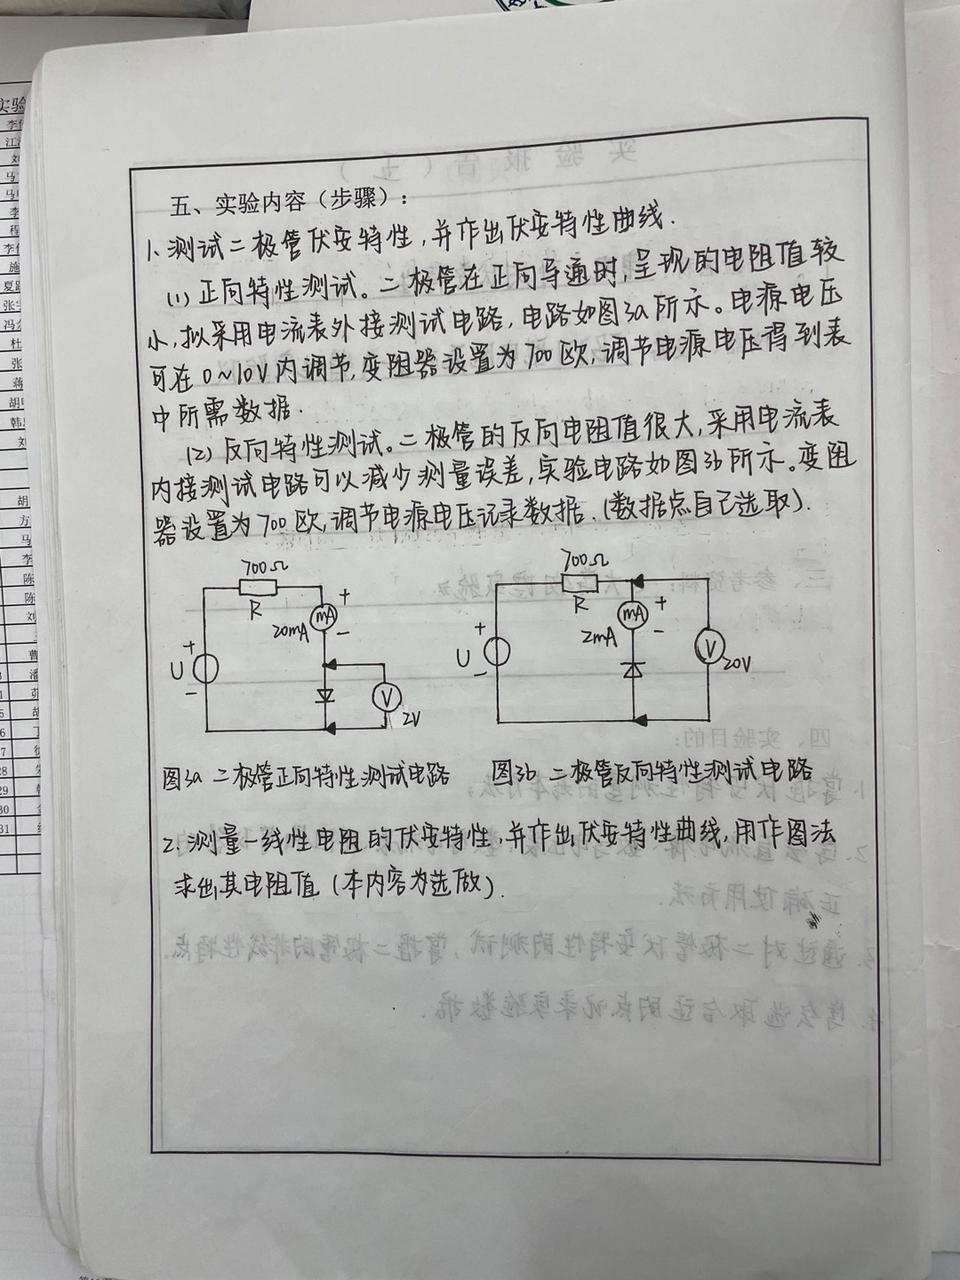 五、实验内容（步骤）：
1. 测试二极管伏安特性，并作出伏安特性曲线.
(1) 正向特性测试。二极管在正向导通时，呈现的电阻值较
小，拟采用电流表外接测试电路，电路如图3a所示。电源电压
可在0~10V内调节，变阻器设置为700欧，调节电源电压得到表
中所需数据.
(2) 反向特性测试。二极管的反向电阻值很大，采用电流表
内接测试电路可以减少测量误差，实验电路如图3b所示。变阻
器设置为700欧，调节电源电压记录数据.（数据点自己选取）.
700Ω
R
+
mA
20mA
-
+
U
-
V
2V
700Ω
R
+
mA
2mA
-
+
U
-
V
20V
图3a 二极管正向特性测试电路
图3b 二极管反向特性测试电路
2. 测量一线性电阻的伏安特性，并作出伏安特性曲线，用作图法
求出其电阻值（本内容为选做）.